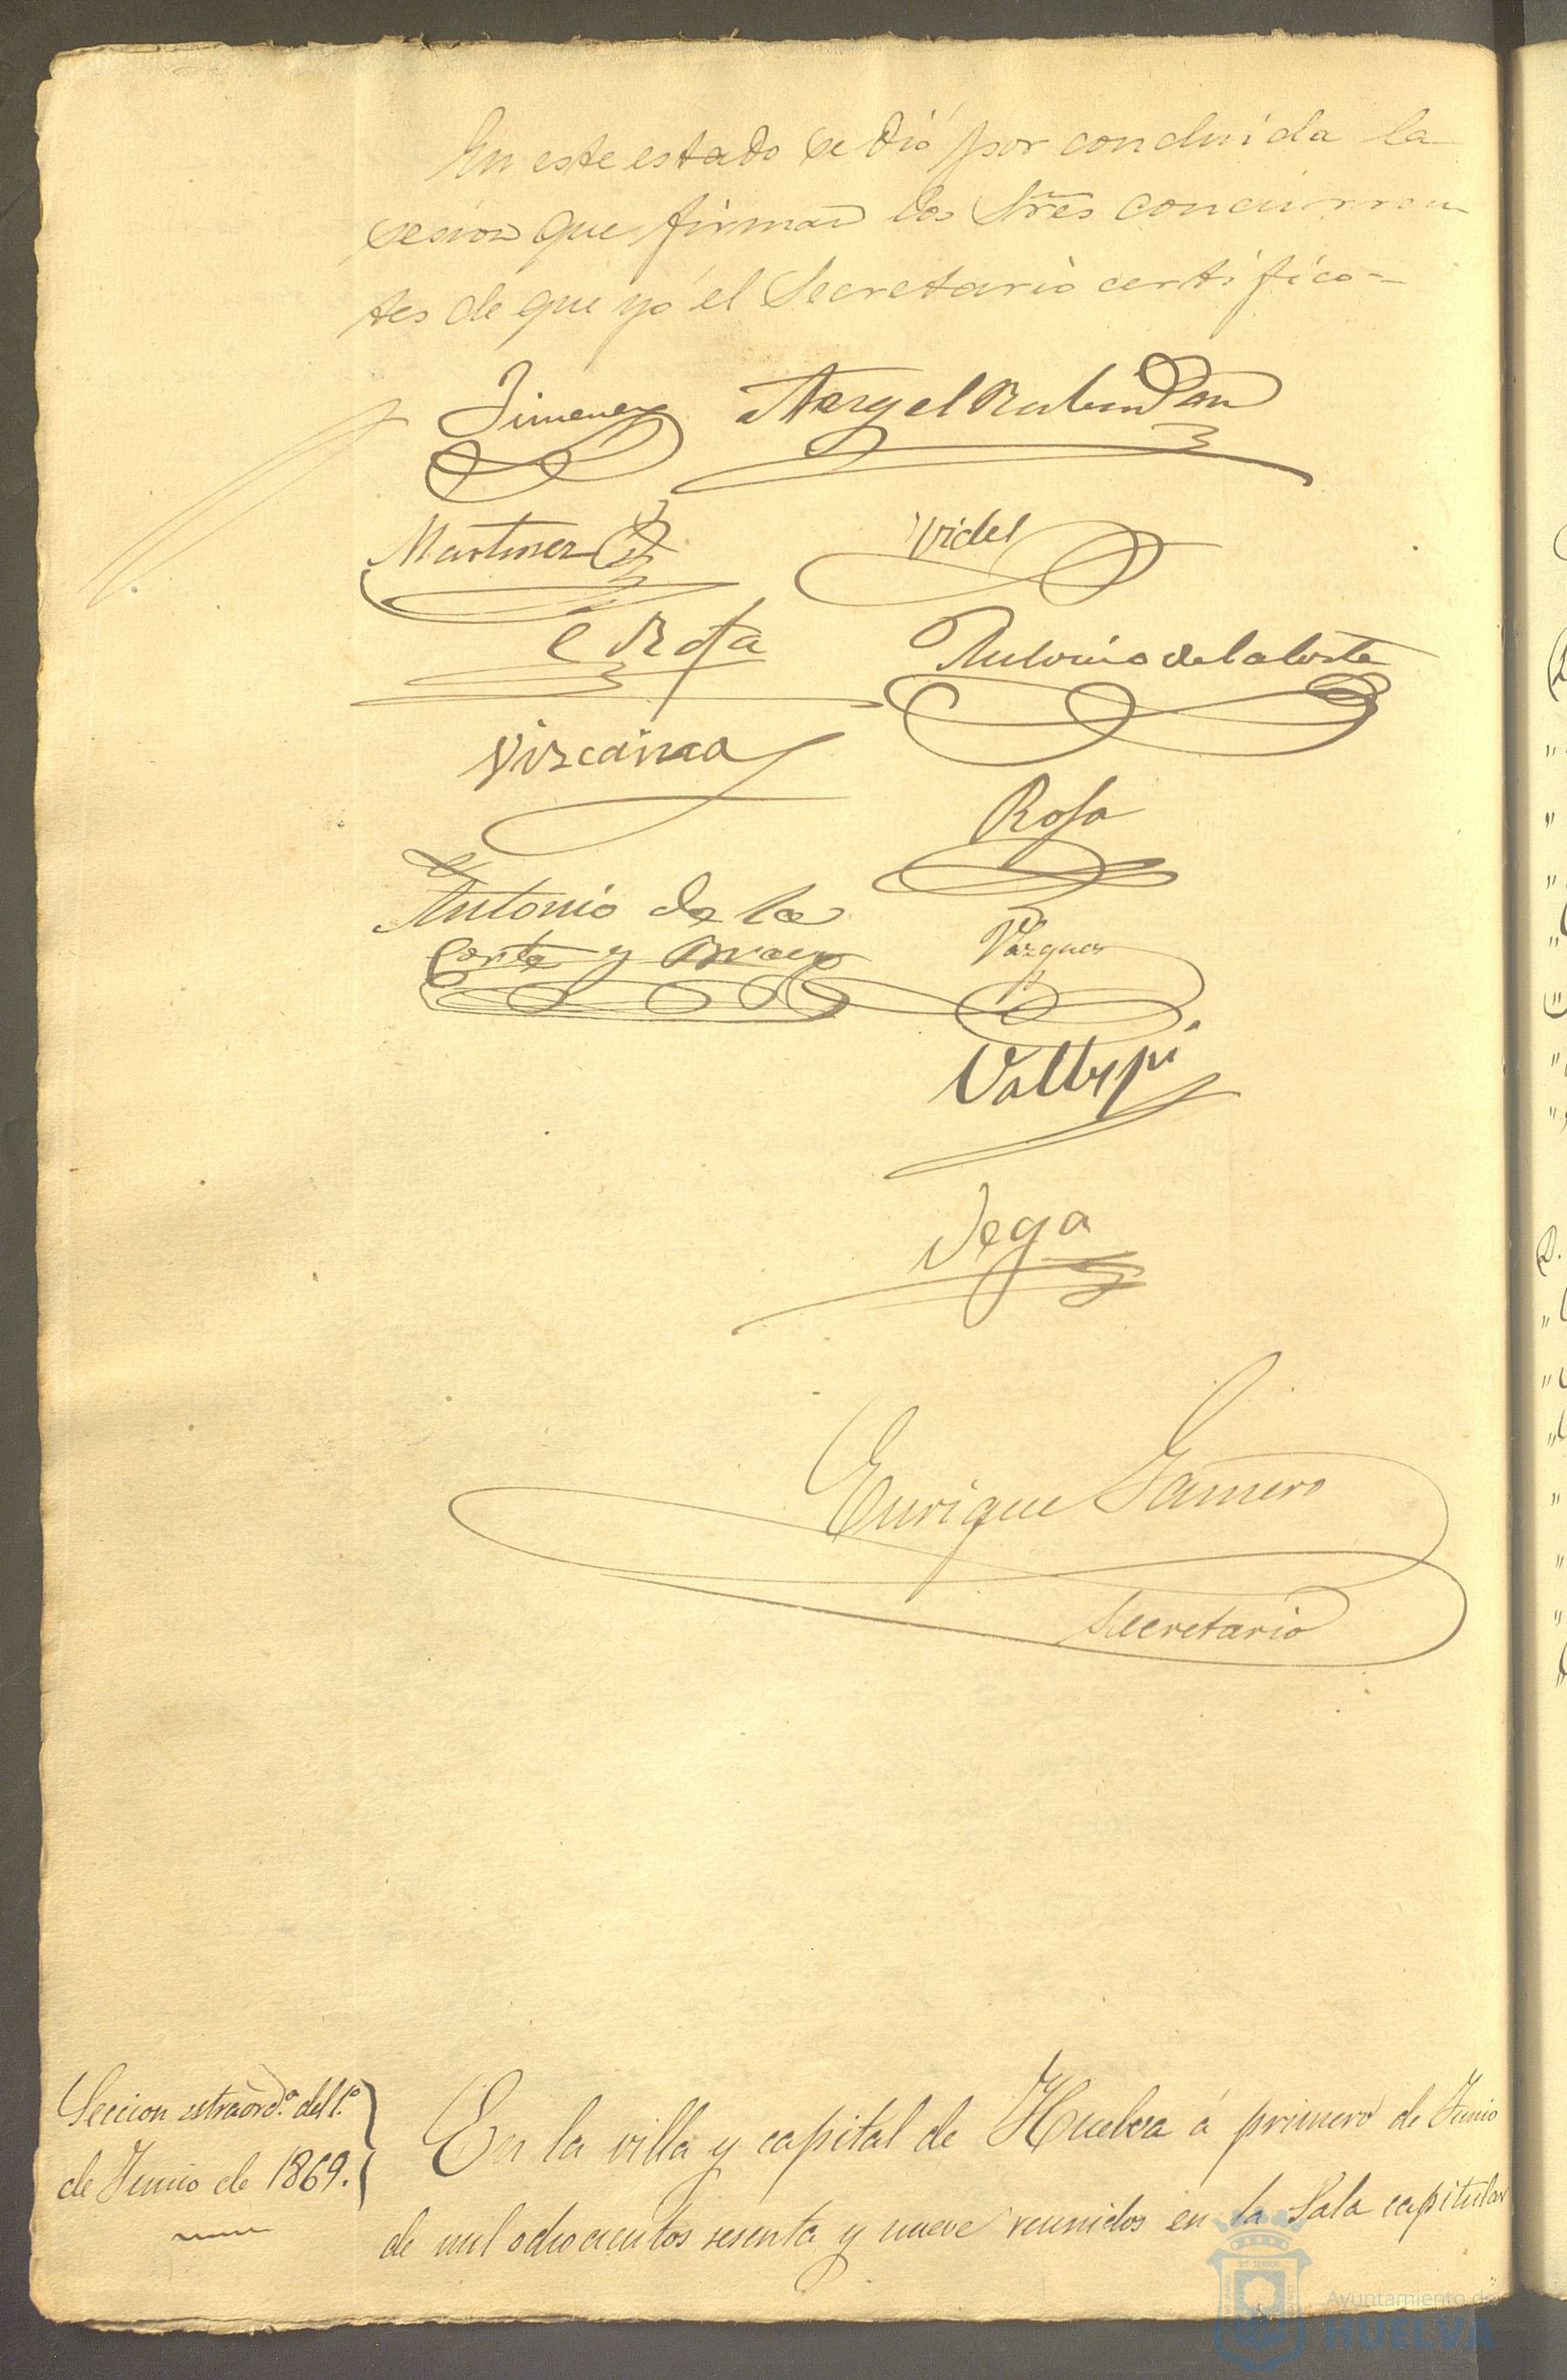 En este estado se dió por concluida la
sesion que firman los Sres concurren
tes de que yo el Secretario certifico=
Jimenez Angel Rubin
Martinez Vidal
C Rota Antonio de la Corte
Vizcaina
Rosa
Antonio de la
Corte y Bravo Vazquez
Vega
Enrique Gamero
Secretario
Seccion estraord.ª del 1.º
de Junio de 1869.
En la villa y capital de Huelva á primero de Junio
de mil ochocientos sesenta y nueve reunidos en la Sala capitular
Ayuntamiento de
HUELVA